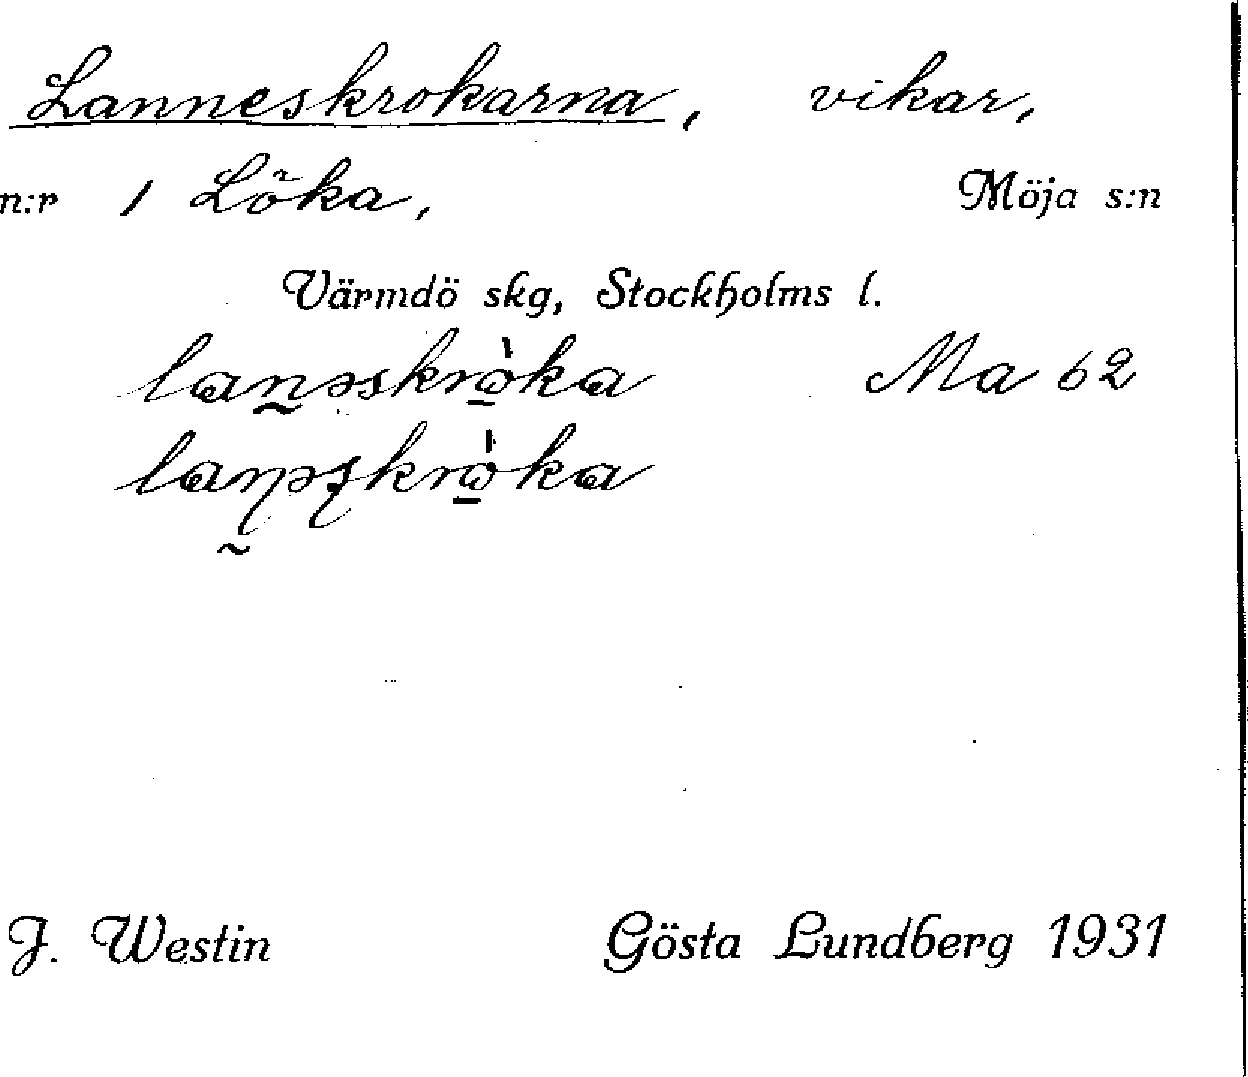 Lanneskrokarna, vikar,
n:r 1 Löka, Möja s:n
Värmdö skg, Stockholms l.
lan̰əskrò̱ka Ma 62
laɳ̰əʂkrò̱ka
J. Westin Gösta Lundberg 1931